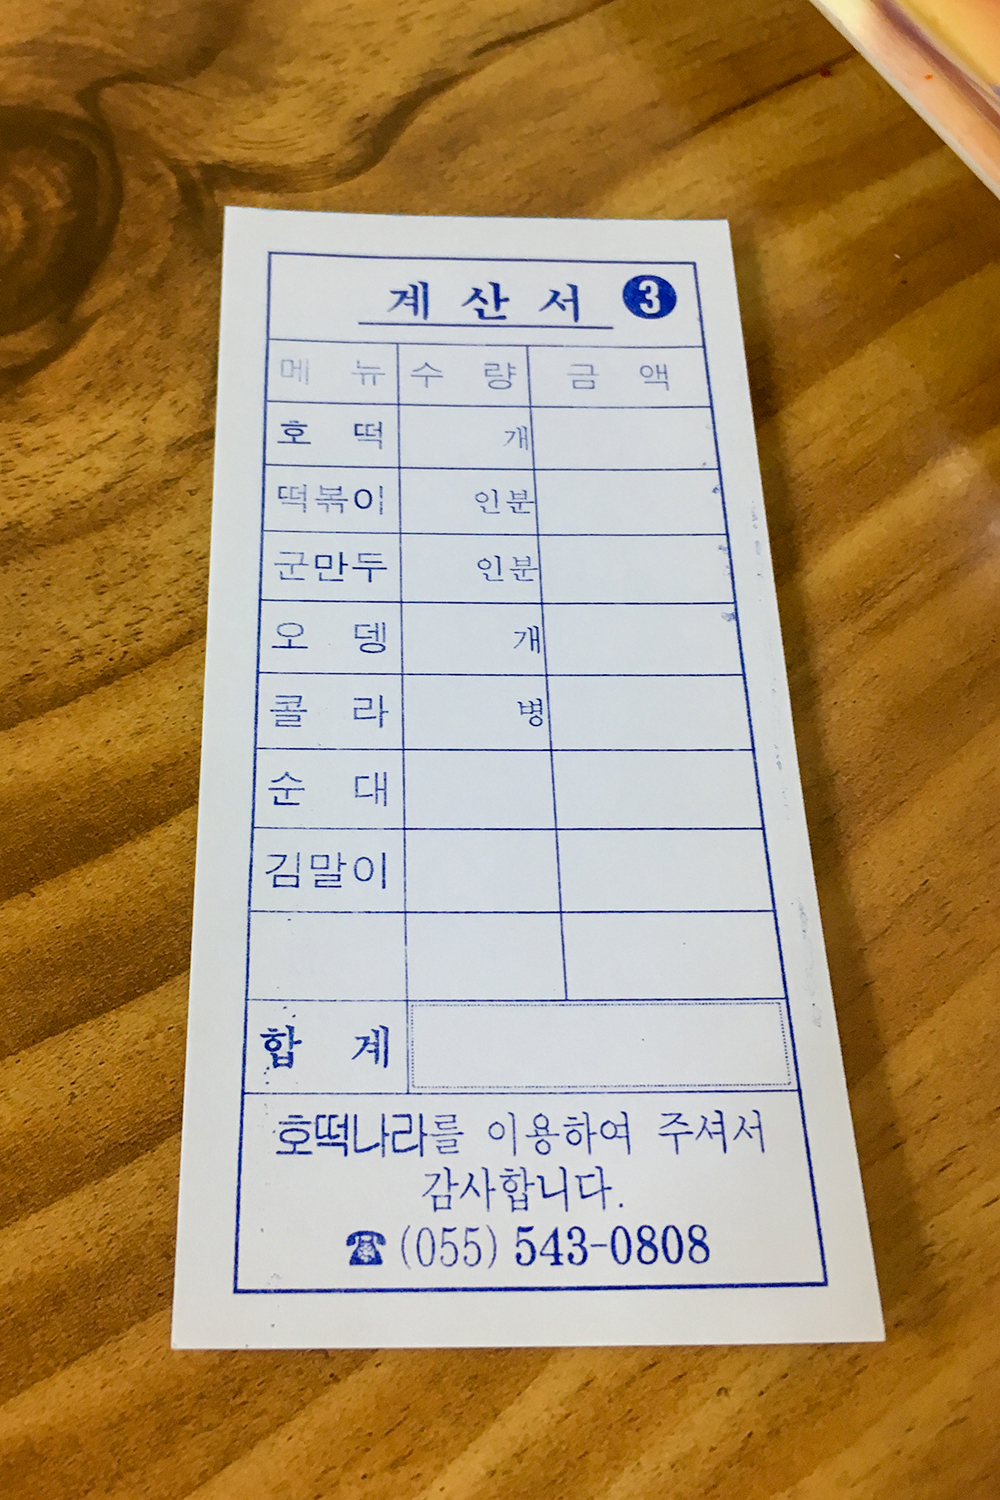 계 산 서 3
메 뉴 수 량 금 액
호 떡 개
떡볶이 인분
군만두 인분
오 뎅 개
콜 라 병
순 대
김말이
합 계
호떡나라를 이용하여 주셔서
감사합니다.
☎(055) 543-0808